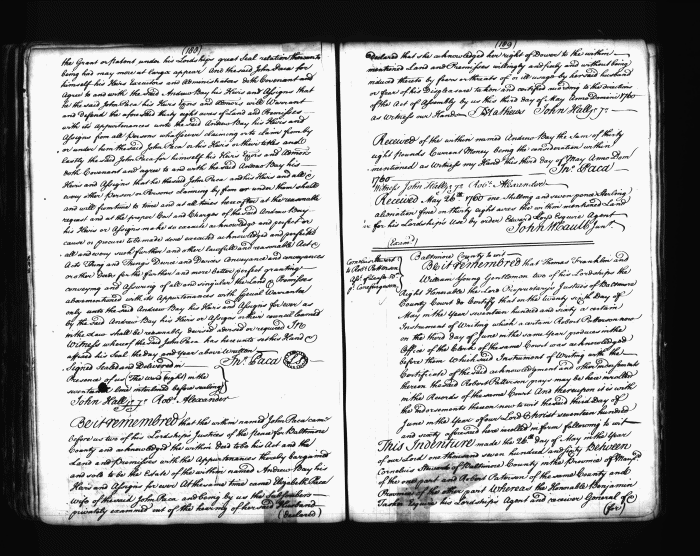 (188)
the Grant or Patent under his Lordships great Seal relation thereunto
being had may more at large appear And the said John Paca for
himself his Heirs Executors and Administrators doth Covenant and
Agree to and with the said Andrew Bay his Heirs and Assigns that
he the said John Paca his Heirs and will Warrant
and Defend the aforesaid thirty eight acres of Land and Premisses
with its appurtenances unto the said Andrew Bay his Heirs and
Assigns from all Persons whatsoever claiming or to claim from by
or under him the said John Paca or his Heirs or their titles and
lastly the said John Paca for himself his Heirs and
doth Covenant and agree to and with the said Andrew Bay his
Heirs and Assigns that he the said John Paca and his Heirs and all &
every other Person or Persons claiming by from or under them shall
and will from time to time and at all times hereafter at the reasonable
request and at the proper Cost and Charges of the said Andrew Bay
his Heirs or Assigns make do execute acknowledge and perfect or
cause or procure to be made done executed acknowledged and perfected
all and every such further and other lawfull and reasonable Act &
Acts Thing and Things Device and Devices Conveyance and conveyances
matter for the further and more better perfect granting
conveying and Assuring of all and singular the Land & Premisses
aforementioned with its Appurtenances with General Warrantee
only unto the said Andrew Bay his Heirs and Assigns for ever as
by the said Andrew Bay his Heirs or Assigns or their council learned
in the Law shall be reasonably devised advised or required In
Witness whereof the said John Paca has hereunto set his Hand &
affixed his Seal the day and year above written
Signed Sealed and Delivered in Jno. Paca
Presence of us (The word eight in the
seventeenth line interlined before sealing)
John Hall Robt. Alexander
Be it remembred that the within named John Paca came
before us two of his Lordships Justices of the Peace for Baltimore
County and acknowledged the within deed to be his Act and the
Land and Premisses with the Appurtenances thereby Bargained
and sold to be the Estate of the within named Andrew Bay his
Heirs and Assigns for ever At the same time came Elizabeth Paca
wife of the said John Paca and being by us the Subscribers
privately examined out of the hearing of her said Husband
(declared)
(189)
declared that she acknowledged her right of Dower to the within
mentioned Land and Premisses willingly and freely and without being
induced thereto by fears or threats of or ill usage by her said husband
or fear of his Displeasure to him and certified according to the direction
of the Act of Assembly by us this third day of May Anno Domini 1760
as Witness our Hands J Mathews John Hall
Received of the within named Andrew Bay the sum of thirty
eight Pounds Current Money being the consideration within
mentioned as Witness my Hand this third day of May Anno Dom
1760 Jno. Paca
Witness John Hall Robt. Alexander
Received May 26th 1760 one Shilling and seven pence Sterling
alienation fine on thirty eight acres the within mentioned Land
for his Lordships Use by order Edward Lloyd Esquire Agent
John Jun.
(Exam'd)
Cornelius Steward
to Robt. Patterson
Baltimore County to wit
Be it remembred that Thomas Franklin and
William Young Gentlemen two of his Lordships the
Right Honorable the Lord Proprietary's Justices of Baltimore
County Court do Certify that on the twenty sixth Day of
May in the Year seventeen hundred and sixty a certain
Instrument of Writing which a certain Robert Patterson now
on the third Day of June in the same Year produces in the
Office of the Clerk of the same Court was acknowledged
before them Which said Instrument of Writing with the
Certificate of the said acknowledgment and other indorsements
thereon the said Robert Patterson prays may be here enrolled
in the Records of the same Court And thereupon it is with
the indorsements thereon now to wit the said third Day of
June in the Year of our Lord Christ seventeen hundred
and sixty enrolled in form following to wit
This Indenture made the 26th day of May in the Year
of our Lord one Thousand seven hundred and sixty Between
Cornelius Steward of Baltimore County in the Province of Maryd
of the one part and Robert Patterson of the same County and
Province of the other part Whereas the Honorable Benjamin
Tasker Esquire his Lordships Agent and receiver General of &
(for)